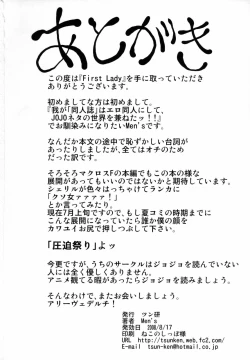 あとがき
この度は『First Lady』を手に取っていただき
ありがとうございます。
初めましてな方は初めまして。
『我が「同人誌」はエロ同人にして、
JOJOネタの世界を兼ねたッ!!』
でお馴染みになりたいMen'sです。
なんだか本文の途中で恥ずかしい台詞が
あったりしましたが、全てはオチのため
だった訳です。
そろそろマクロスFの本編でもこの本の様な
展開があってもいいのではないかと期待しています。
シェリルが色々はっちゃけてランカに
「クソ女ァァァァ!!」
とか言ってみたり。
現在7月上旬ですので、もし夏コミの時期までに
こんな展開になっていたら誰か僕の顔を
カワユイお尻で押しつぶして下さい。
「圧迫祭り」よッ
今更ですが、うちのサークルはジョジョを読んでいない
人には全く優しくありません。
アニメ観てる暇があったらジョジョを読みましょう。
そんなわけで、またお会いしましょう。
アリーヴェデルチ!
発行 ツン研
著者 Men's
発効日 2008/8/17
印刷 ねこのしっぽ様
URL http://tsunken.web.fc2.com/
E-mail tsun-ken@hotmail.co.jp